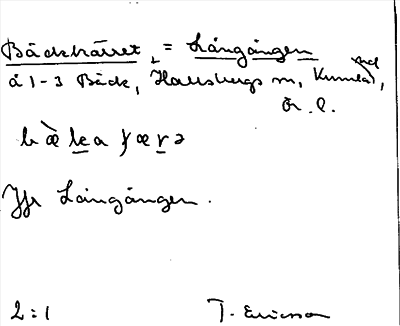 Bäckkärret, = Långången
å 1-3 Bäck, Hallsbergs m, Kumla hd,
Ör. l.
Jfr Långången.
2:1 T. Ericsson